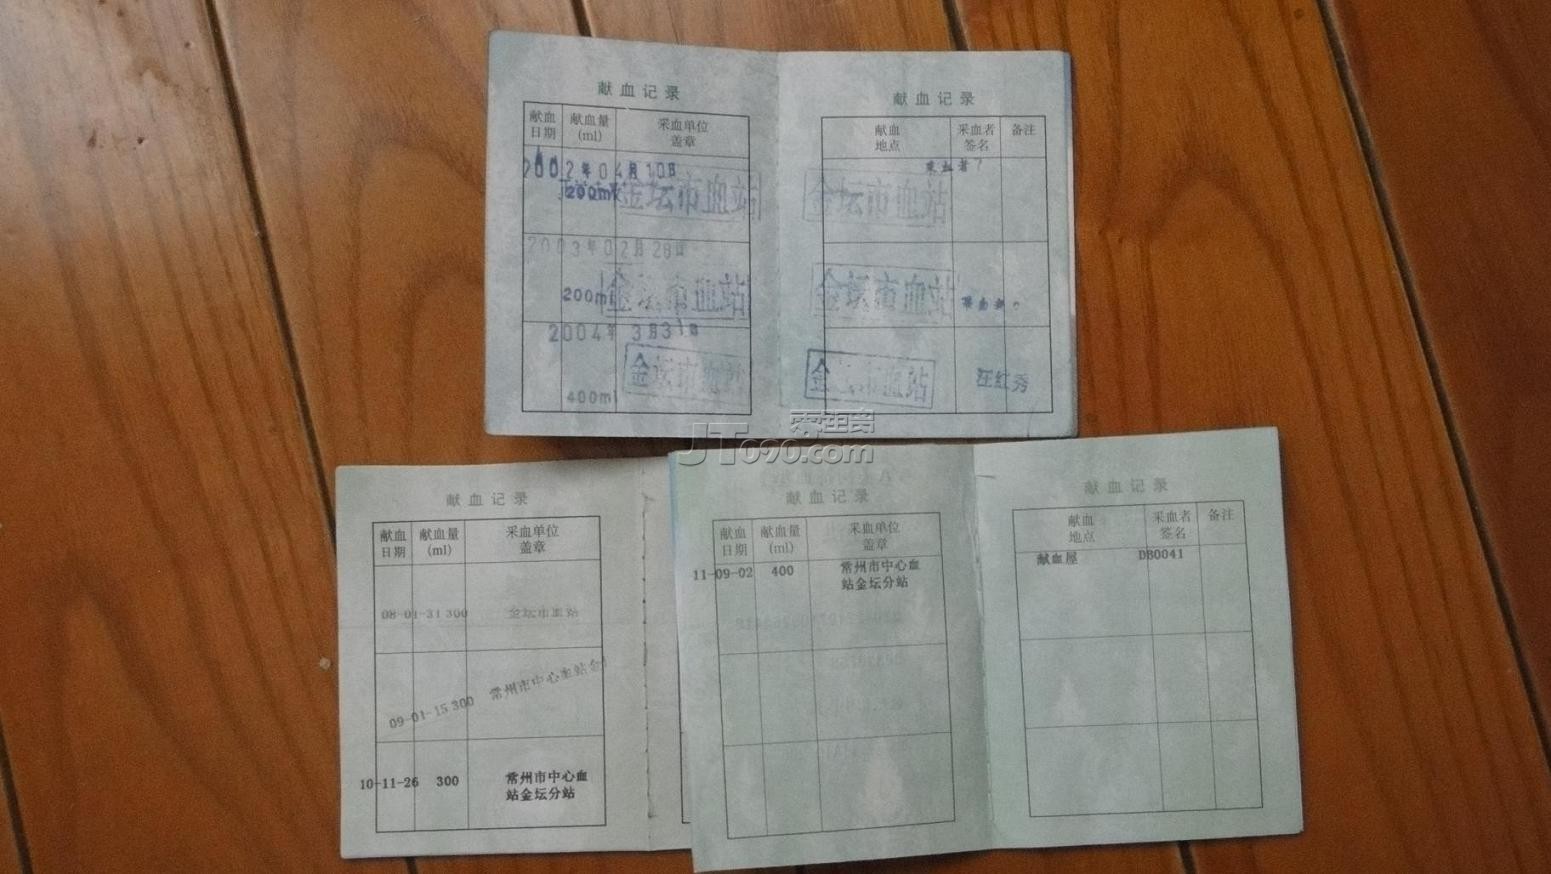 献血记录
献血日期 献血量(ml) 采血单位盖章
2002年04月10日
200ml 金坛市血站
2003年02月28日
200ml 金坛市血站
2004年3月31日
400ml 金坛市血站
献血记录
献血地点 采血者签名 备注
采血者7
金坛市血站
金坛市血站
金坛市血站 汪红秀
JT090.com
献血记录
献血日期 献血量(ml) 采血单位盖章
08-01-31 300 金坛市血站
09-01-15 300 常州市中心血站金
10-11-26 300 常州市中心血
站金坛分站
献血记录
献血日期 献血量(ml) 采血单位盖章
11-09-02 400 常州市中心血
站金坛分站
献血记录
献血地点 采血者签名 备注
献血屋 DB0041